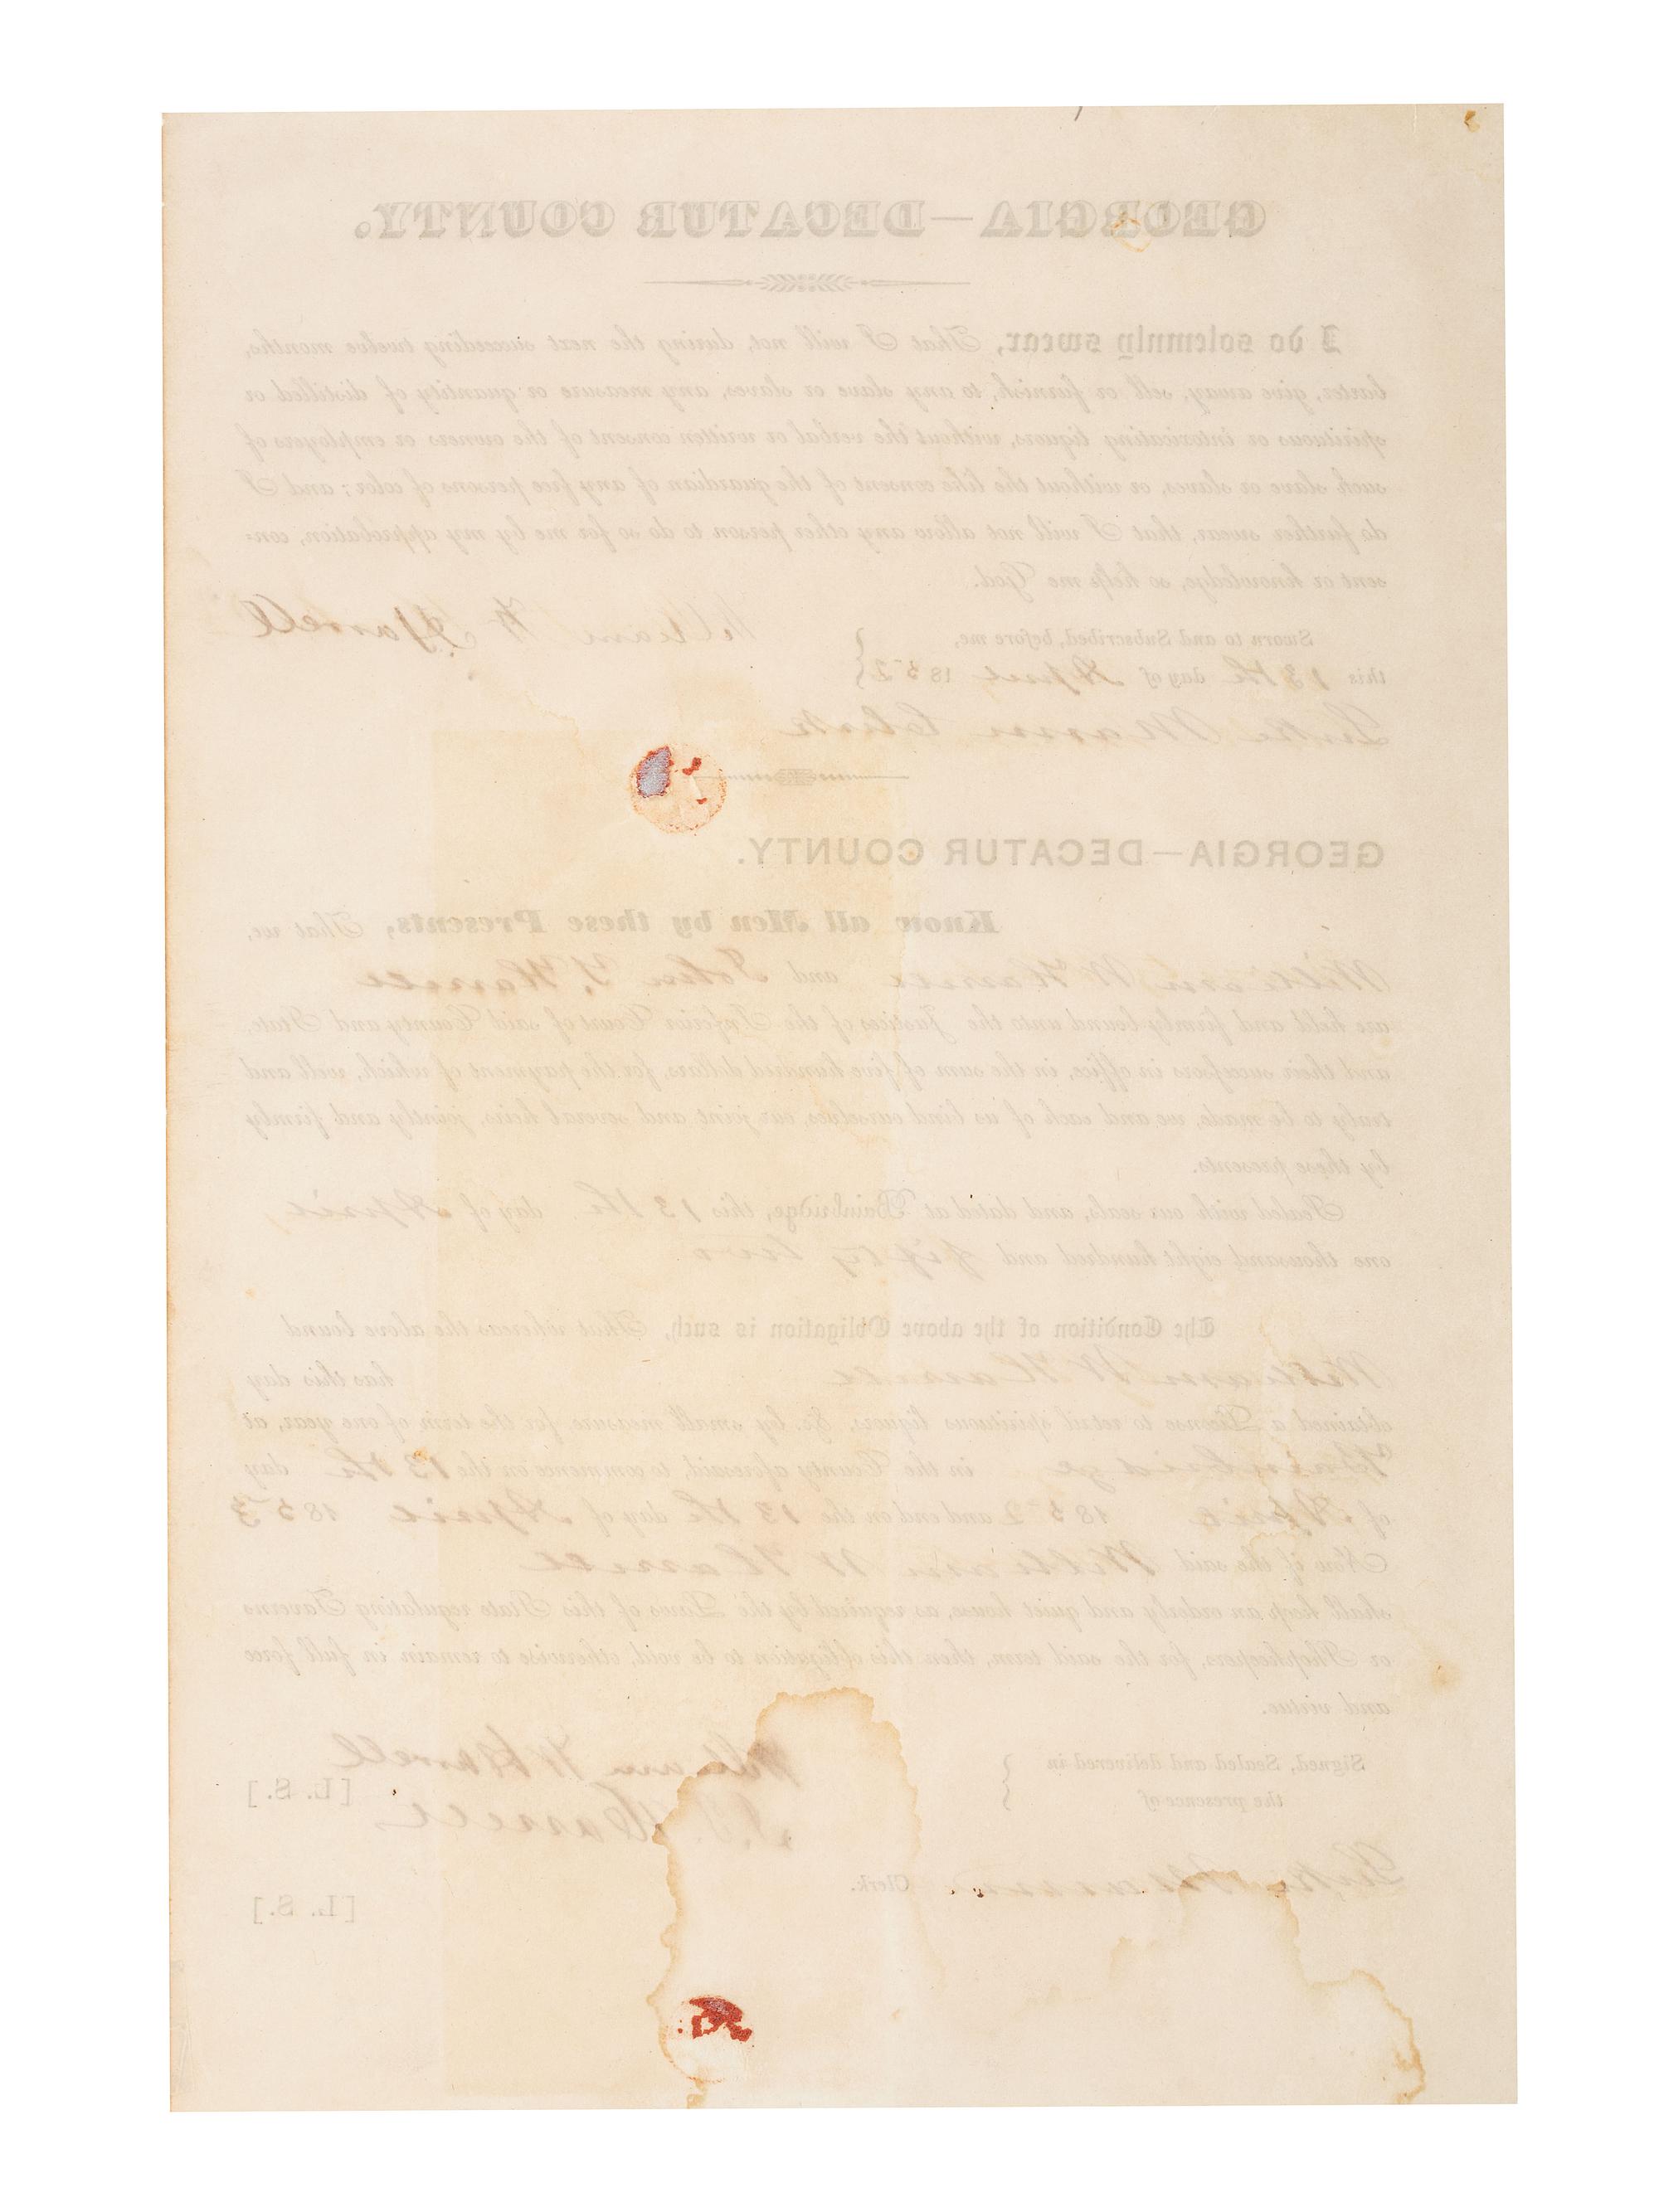 GEORGIA—DECATUR COUNTY.
I do solemnly swear, That I will not, during the next succeeding twelve months,
barter, give away, sell or furnish, to any slave or slaves, any measure or quantity of distilled or
spirituous or intoxicating liquors, without the verbal or written consent of the owners or employers of
such slave or slaves, or without the like consent of the guardian of any free persons of color; and I
do further swear, that I will not allow any other person to do so for me by my approbation, con-
sent or knowledge, so help me God.
Sworn to and Subscribed, before me, William W Harrell
this 13th day of April 1852
Mann Clerk
GEORGIA—DECATUR COUNTY.
Know all Men by these Presents, That we,
William W Harrell and John Harrell
are held and firmly bound unto the Justices of the Inferior Court of said County and State,
and their successors in office, in the sum of five hundred dollars, for the payment of which, well and
truly to be made, we and each of us bind ourselves, our joint and several heirs, jointly and firmly
by these presents.
Sealed with our seals, and dated at Bainbridge, this 13th day of April,
one thousand eight hundred and fifty two
The Condition of the above Obligation is such, That whereas the above bound
William W Harrell has this day
obtained a License to retail spirituous liquors, &c. by small measure for the term of one year, at
Bainbridge in the County aforesaid, to commence on the 13th day
of April 1852 and end on the 13th day of April 1853
Now if the said William W Harrell
shall keep an orderly and quiet house, as required by the Laws of this State regulating Taverns
or Shopkeepers, for the said term, then this obligation to be void, otherwise to remain in full force
and virtue.
Signed, Sealed and delivered in William W Harrell
the presence of [L. S.]
Harrell
Mann Clerk.
[L. S.]